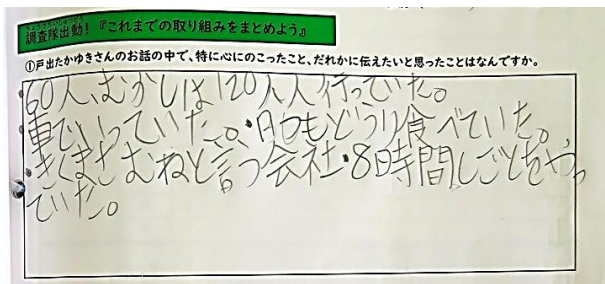 調査隊出動！『これまでの取り組みをまとめよう』
①戸出たかゆきさんのお話の中で、特に心にのこったこと、だれかに伝えたいと思ったことはなんですか。
・60人、むかしは120人人行っていた。
車でいっていた。・日つもどうり食べていた。
・きくまさむねと言う会社・8時間しごとをやっ
ていた。